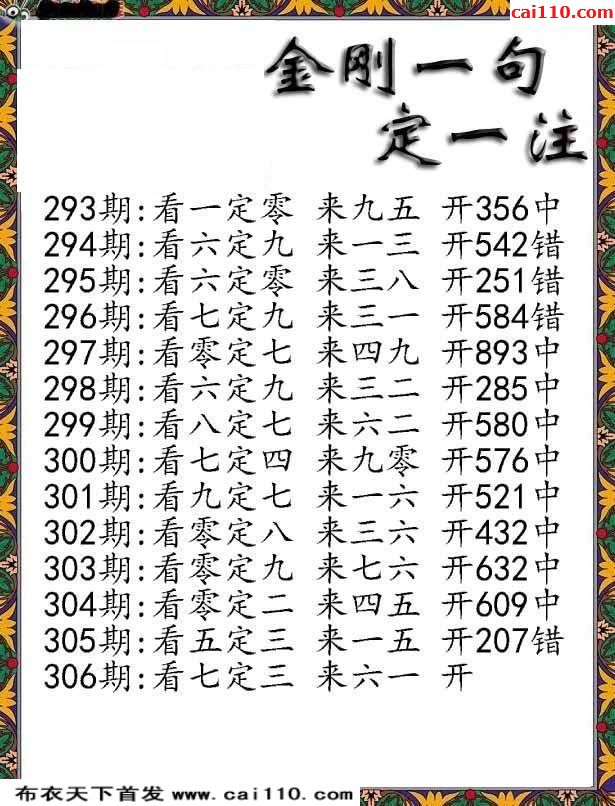 cai110.com
金刚一句
定一注
293期:看一定零 来九五 开356中
294期:看六定九 来一三 开542错
295期:看六定零 来三八 开251错
296期:看七定九 来三一 开584错
297期:看零定七 来四九 开893中
298期:看六定九 来三二 开285中
299期:看八定七 来六二 开580中
300期:看七定四 来九零 开576中
301期:看九定七 来一六 开521中
302期:看零定八 来三六 开432中
303期:看零定九 来七六 开632中
304期:看零定二 来四五 开609中
305期:看五定三 来一五 开207错
306期:看七定三 来六一 开
布衣天下首发 www.cai110.com